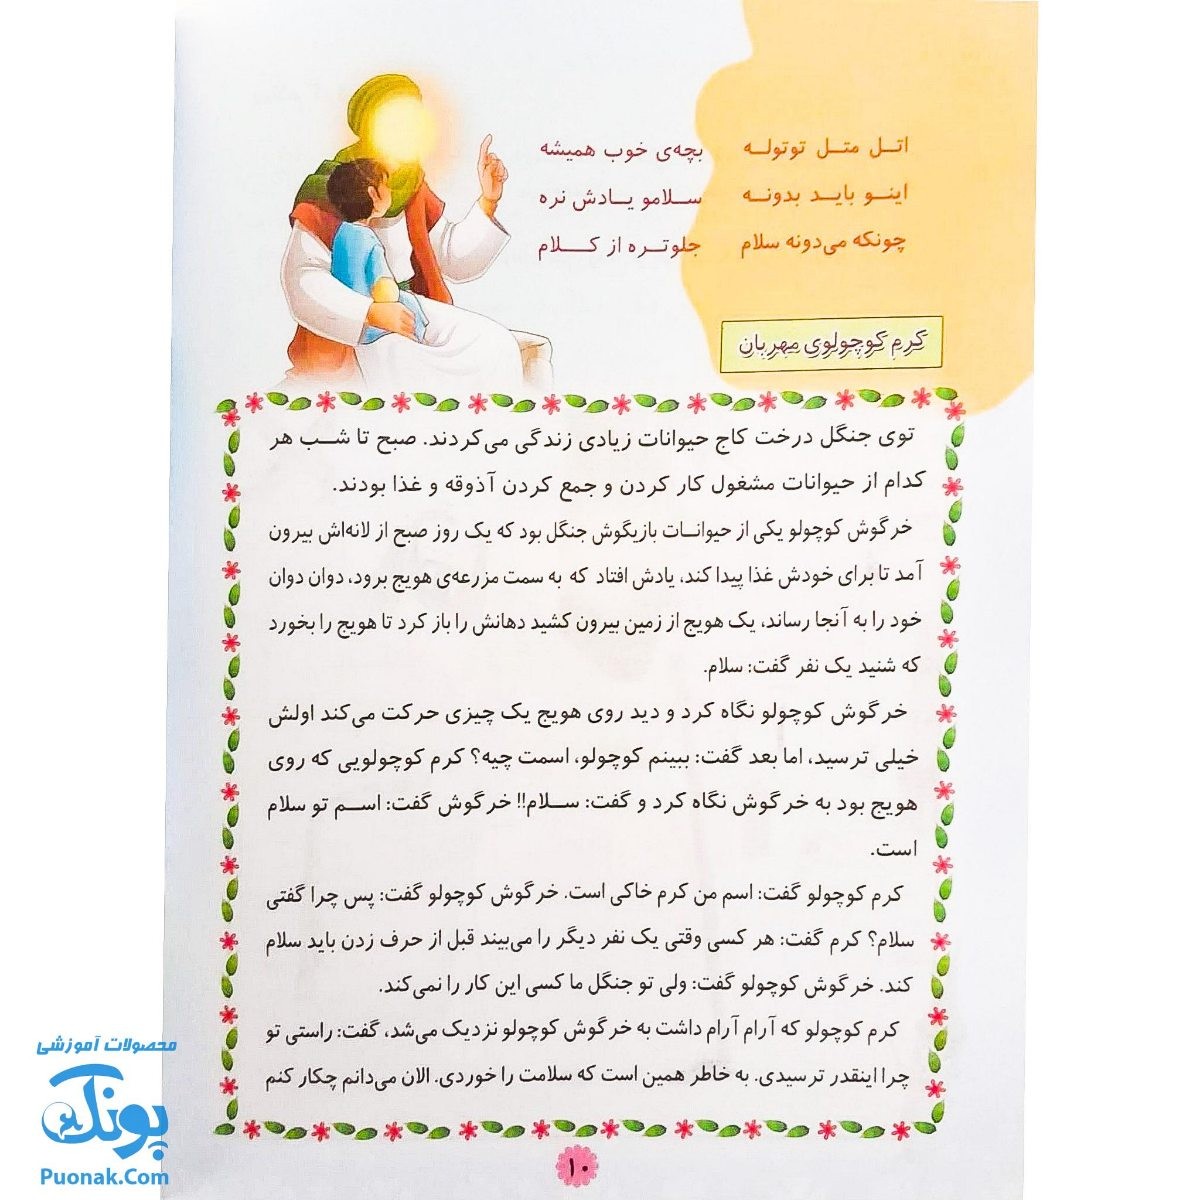 اتل متل توتوله بچه‌ی خوب همیشه
اینو باید بدونه سلامو یادش نره
چونکه می‌دونه سلام جلوتره از کلام
کرم کوچولوی مهربان
توی جنگل درخت کاج حیوانات زیادی زندگی می‌کردند. صبح تا شب هر
کدام از حیوانات مشغول کار کردن و جمع کردن آذوقه و غذا بودند.
خرگوش کوچولو یکی از حیوانات بازیگوش جنگل بود که یک روز صبح از لانه‌اش بیرون
آمد تا برای خودش غذا پیدا کند، یادش افتاد که به سمت مزرعه‌ی هویج برود، دوان دوان
خود را به آنجا رساند، یک هویج از زمین بیرون کشید دهانش را باز کرد تا هویج را بخورد
که شنید یک نفر گفت: سلام.
خرگوش کوچولو نگاه کرد و دید روی هویج یک چیزی حرکت می‌کند اولش
خیلی ترسید، اما بعد گفت: ببینم کوچولو، اسمت چیه؟ کرم کوچولویی که روی
هویج بود به خرگوش نگاه کرد و گفت: سلام!! خرگوش گفت: اسم تو سلام
است.
کرم کوچولو گفت: اسم من کرم خاکی است. خرگوش کوچولو گفت: پس چرا گفتی
سلام؟ کرم گفت: هر کسی وقتی یک نفر دیگر را می‌بیند قبل از حرف زدن باید سلام
کند. خرگوش کوچولو گفت: ولی تو جنگل ما کسی این کار را نمی‌کند.
کرم کوچولو که آرام آرام داشت به خرگوش کوچولو نزدیک می‌شد، گفت: راستی تو
چرا اینقدر ترسیدی. به خاطر همین است که سلامت را خوردی. الان می‌دانم چکار کنم
۱۰
محصولات آموزشی
پونک
Puonak.Com